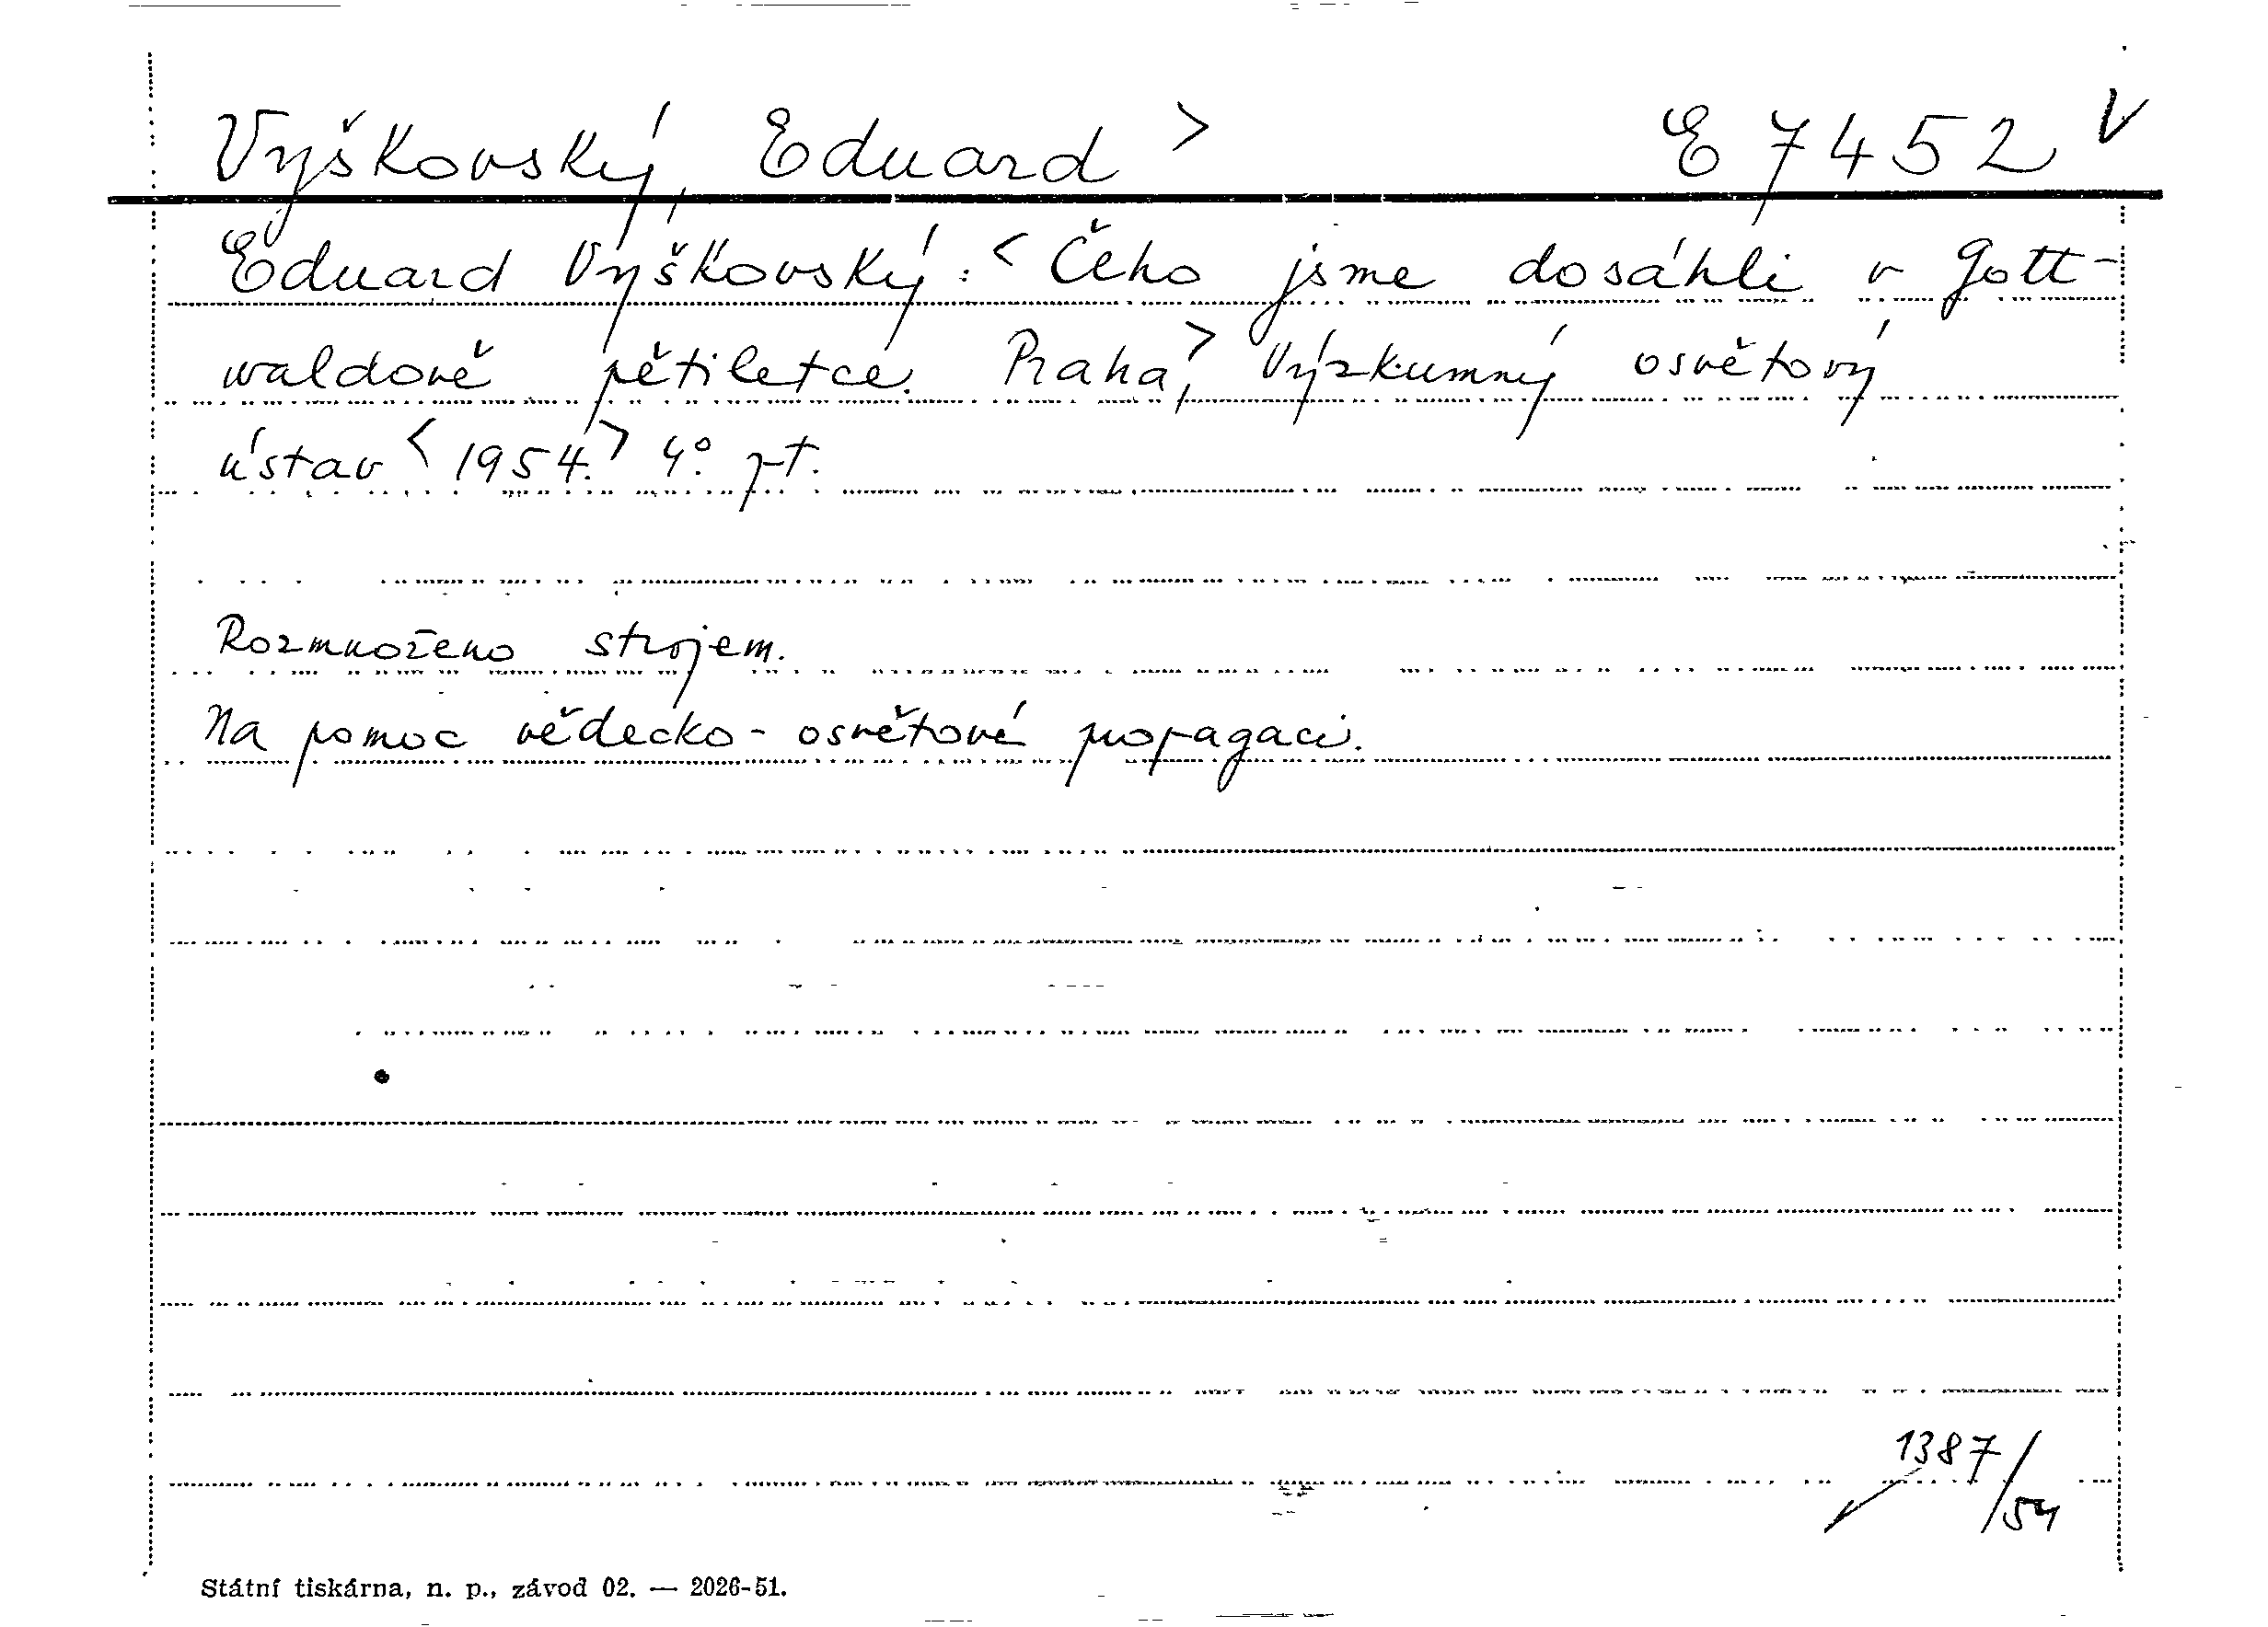 Vyškovský, Eduard > E 7452 V
Eduard Vyškovský: < Čeho jsme dosáhli v Gott-
waldově pětiletce. Praha, > Výzkumný osvětový
ústav < 1954. > 4° pt.
Rozmnoženo strojem.
Na pomoc vědecko-osvětové propagaci.
1387/54
Státní tiskárna, n. p., závod 02. — 2026-51.